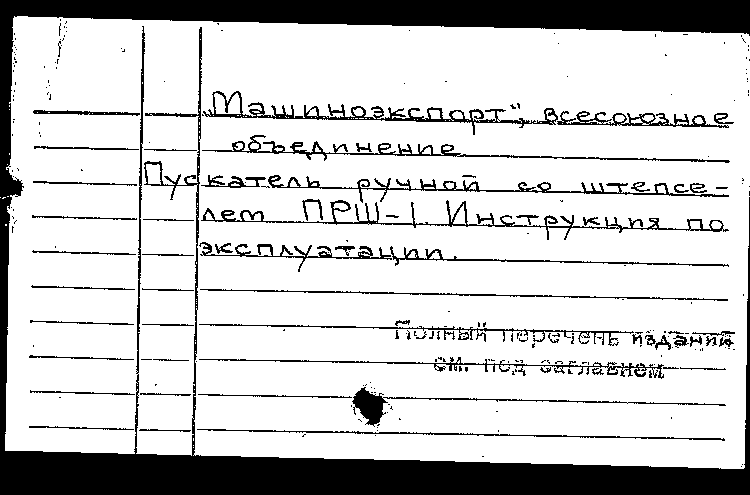 „Машиноэкспорт“, всесоюзное
объединение
Пускатель ручной со штепсе-
лем ПРШ-1. Инструкция по
эксплуатации.
Полный перечень изданий
см. под заглавием